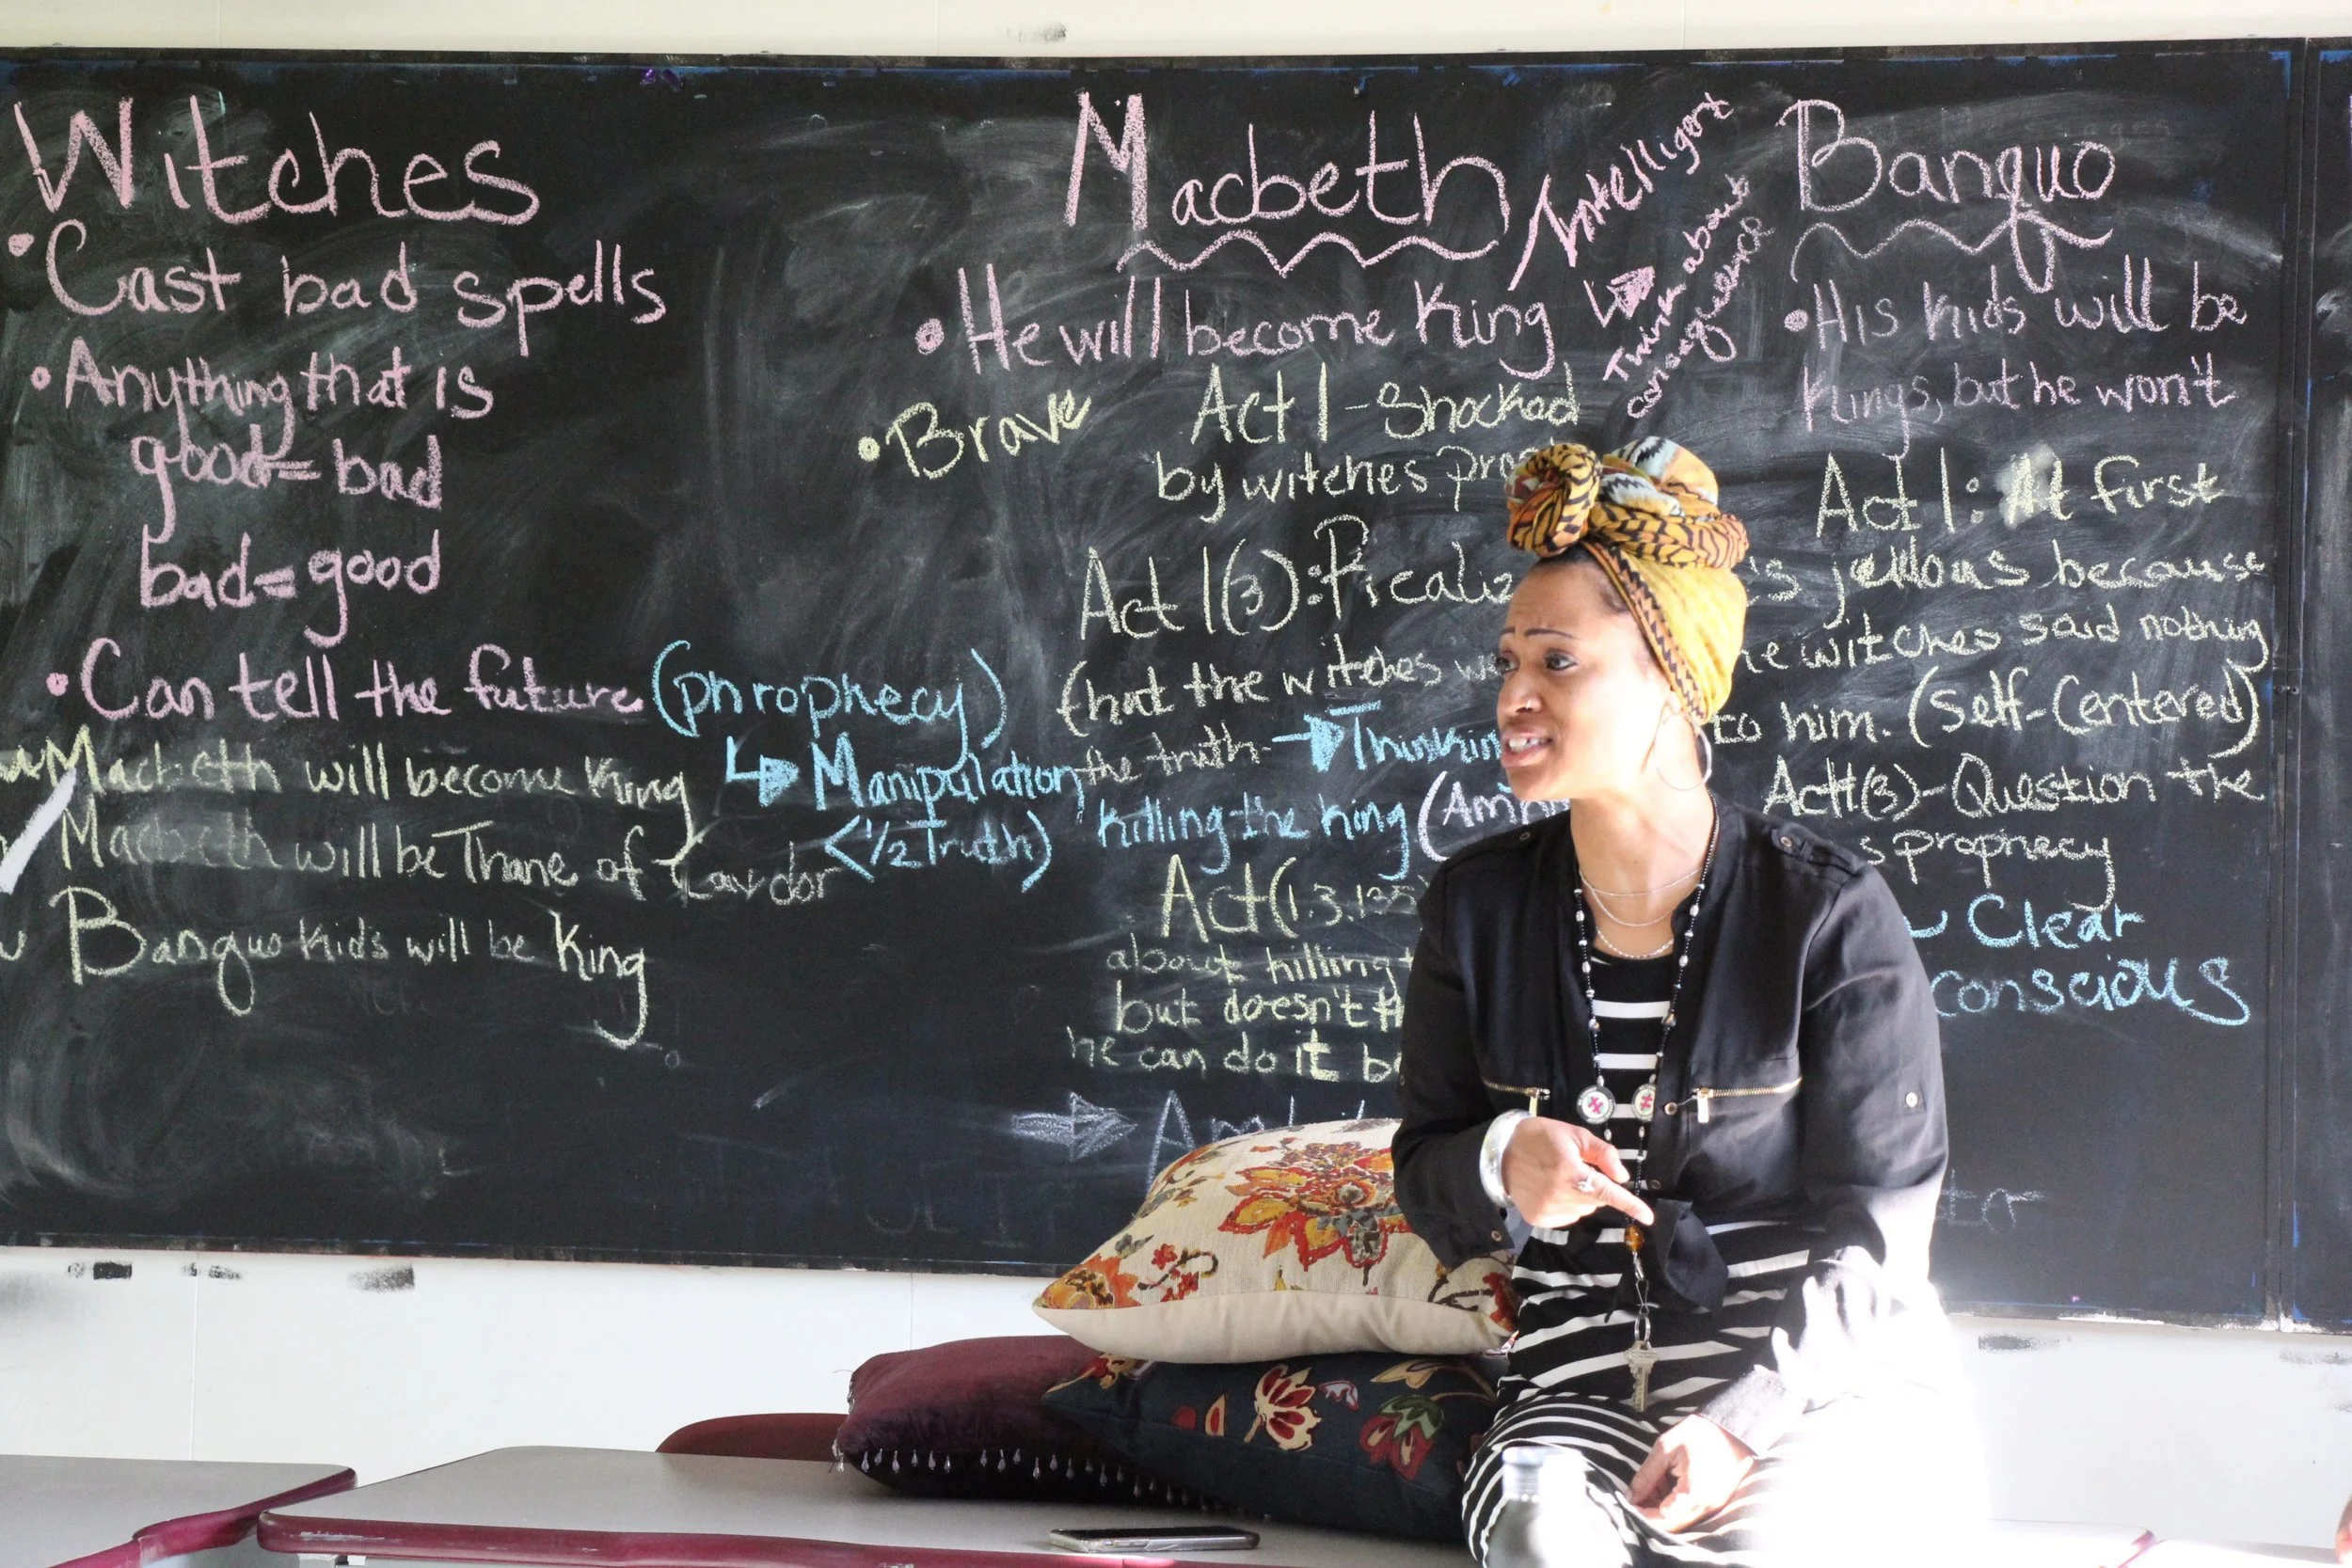 Witches
•Cast bad spells
•Anything that is
good = bad
bad = good
•Can tell the future (phrophecy)
↳ Manipulation
(½ Truth)
Macbeth will become King
Macbeth will be Thane of Cawdor
Banquo kids will be King
Macbeth
•He will become King
•Brave
Act 1 - Shocked
by witches
Act 1(3):
that the witches
the truth → Thinking
killing the King
Act (1.3.135
about killing
but doesn't
he can do it
→
Intelligent
↳ Think about
consequence
Banquo
•His kids will be
Kings, but he won't
Act 1: At first
jellous because
witches said nothing
to him. (Self-Centered)
Act1(3)-Question the
prophecy
Clear
conscious